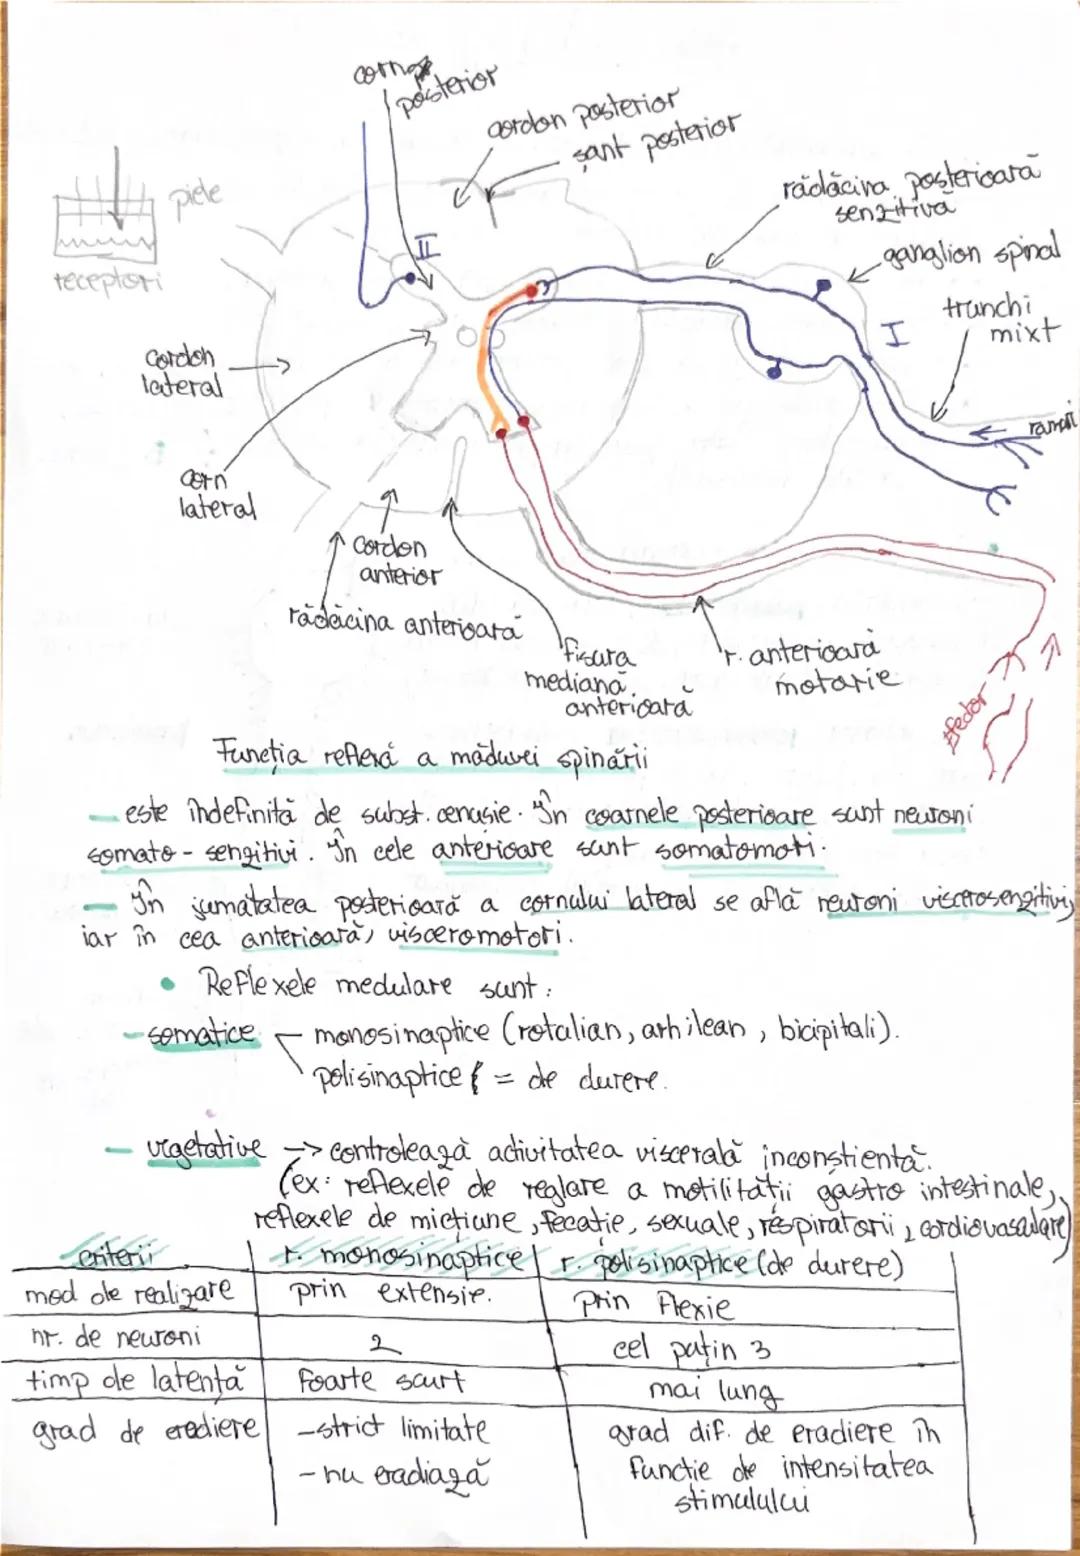 cornp
posterior
cordon posterior
șant posterior
piele
receptori
rădăcina posterioară
senzitivă
ganglion spinal
II
I
trunchi
mixt
ramuri
cordon
lateral
corn
lateral
cordon
anterior
rădăcina anterioară
fisura
mediană
anterioară
r. anterioară
motorie
efector
Funcția reflexă a măduvei spinării
— este îndefinită de subst. cenușie. În coarnele posterioare sunt neuroni
somato-senzitivi. În cele anterioare sunt somatomoti.
— În jumătatea posterioară a cornului lateral se află neuroni viscerosenzitivi,
iar în cea anterioară, visceromotori.
• Reflexele medulare sunt:
- somatice - monosinaptice (rotulian, arhilean, bicipitali).
polisinaptice = de durere.
- vegetative → controlează activitatea viscerală inconștientă.
(ex: reflexele de reglare a motilității gastro intestinale,
reflexele de micțiune, fecație, sexuale, respiratorii, cardiovasculare)
criterii r. monosinaptice r. polisinaptice (de durere)
mod de realizare prin extensie. prin flexie
nr. de neuroni 2 cel puțin 3
timp de latență foarte scurt mai lung
grad de erediere -strict limitate grad dif. de eradiere în
- nu eradiază funcție de intensitatea
stimulului